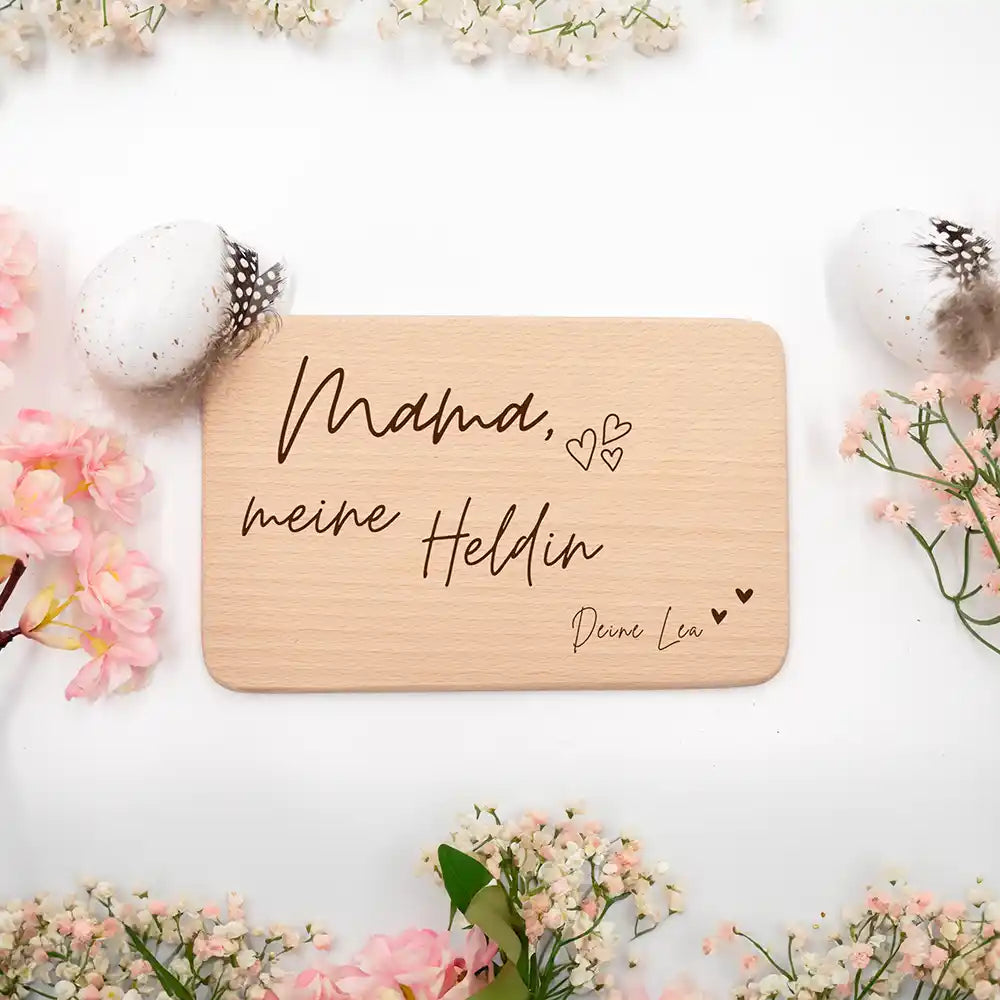 Mama,
meine Heldin
Deine Lea